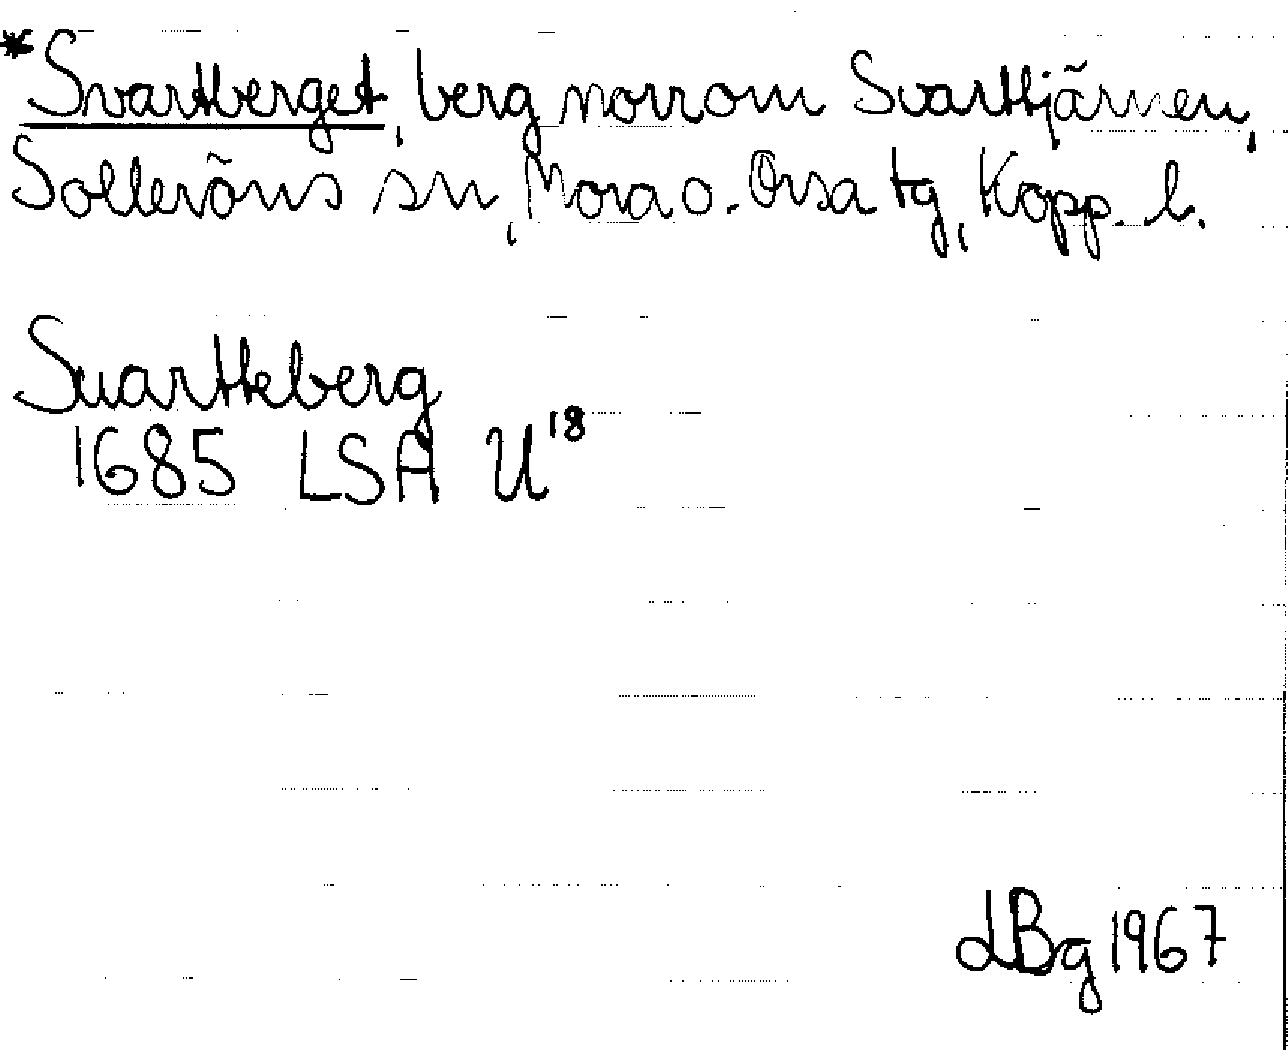 *Svartberget, berg norrom Svarttjärnen,
Solleröns sn, Mora o. Orsa tg, Kopp. l.
Suartteberg
1685 LSA U18
LBg 1967